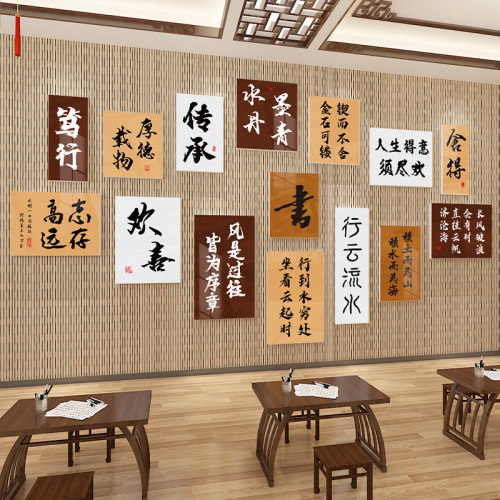 笃行
厚德
载物
传承
水墨
丹青
锲而不舍
金石可镂
人生得意
须尽欢
舍得
志存
高远
欢喜
凡是过往
皆为序章
书
行到水穷处
坐看云起时
行云流水
积土而为山
积水而为海
长风破浪
会有时
直挂云帆
济沧海